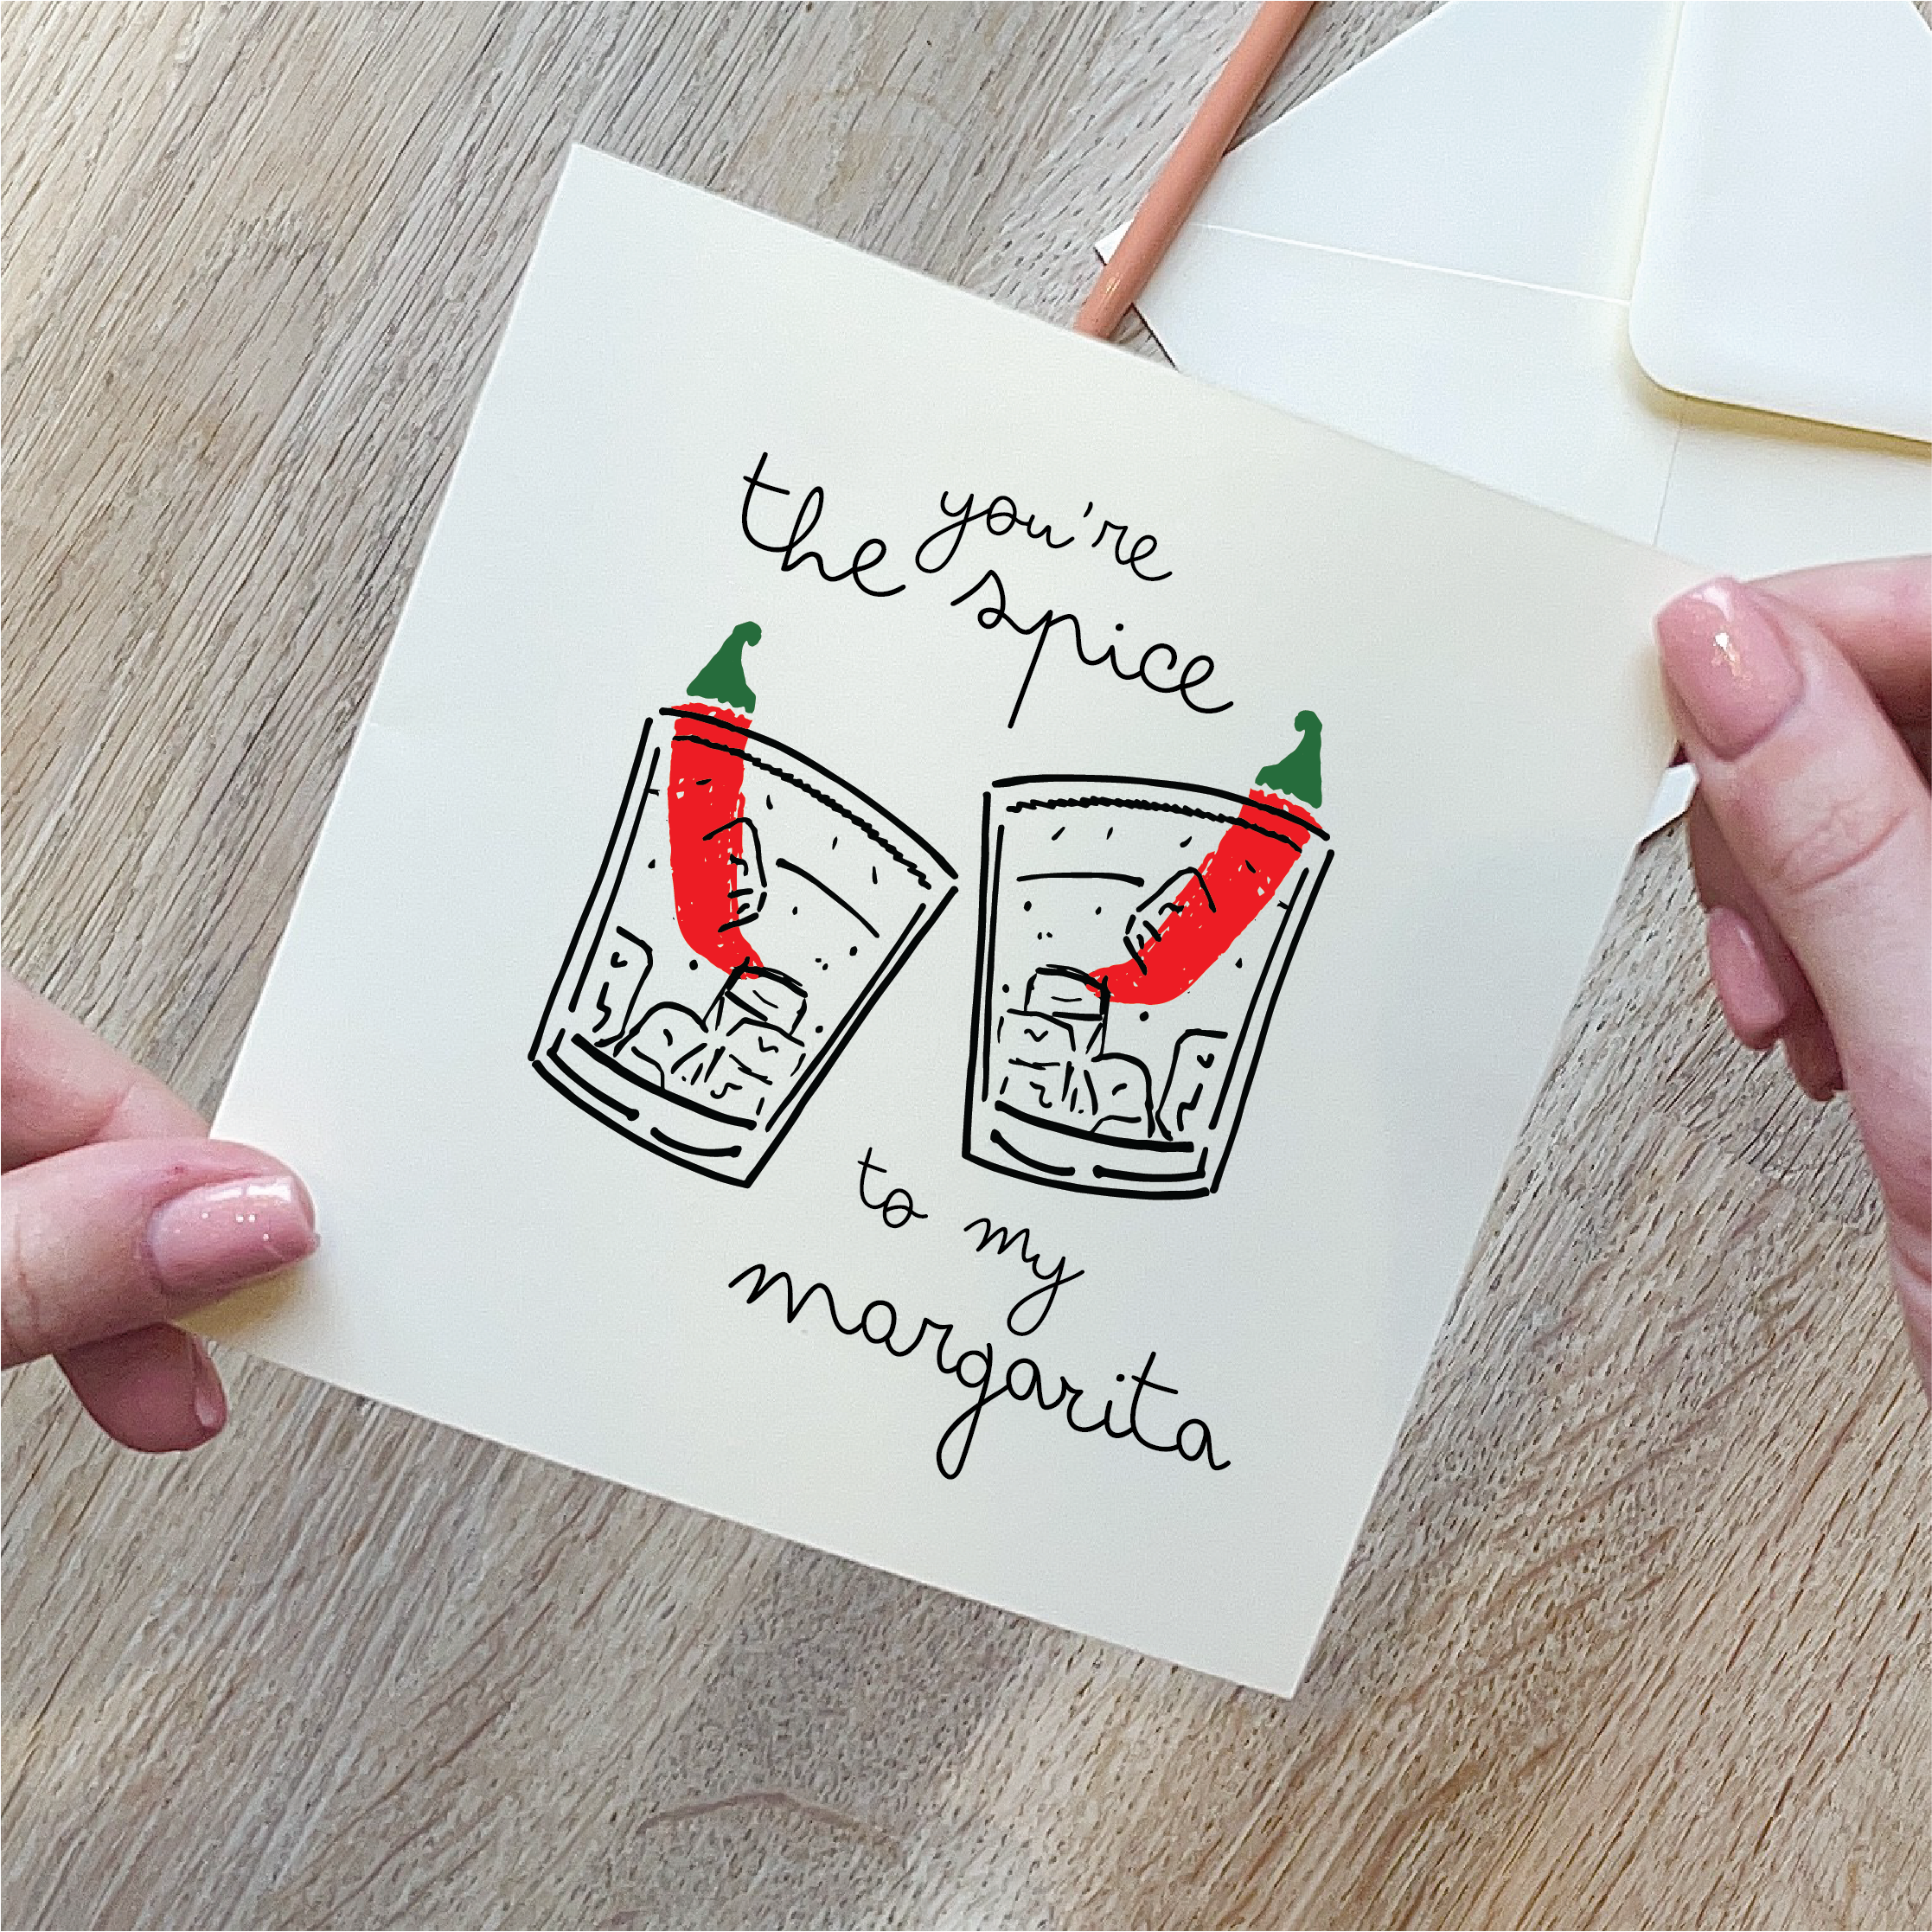 you're
the spice
to my
margarita